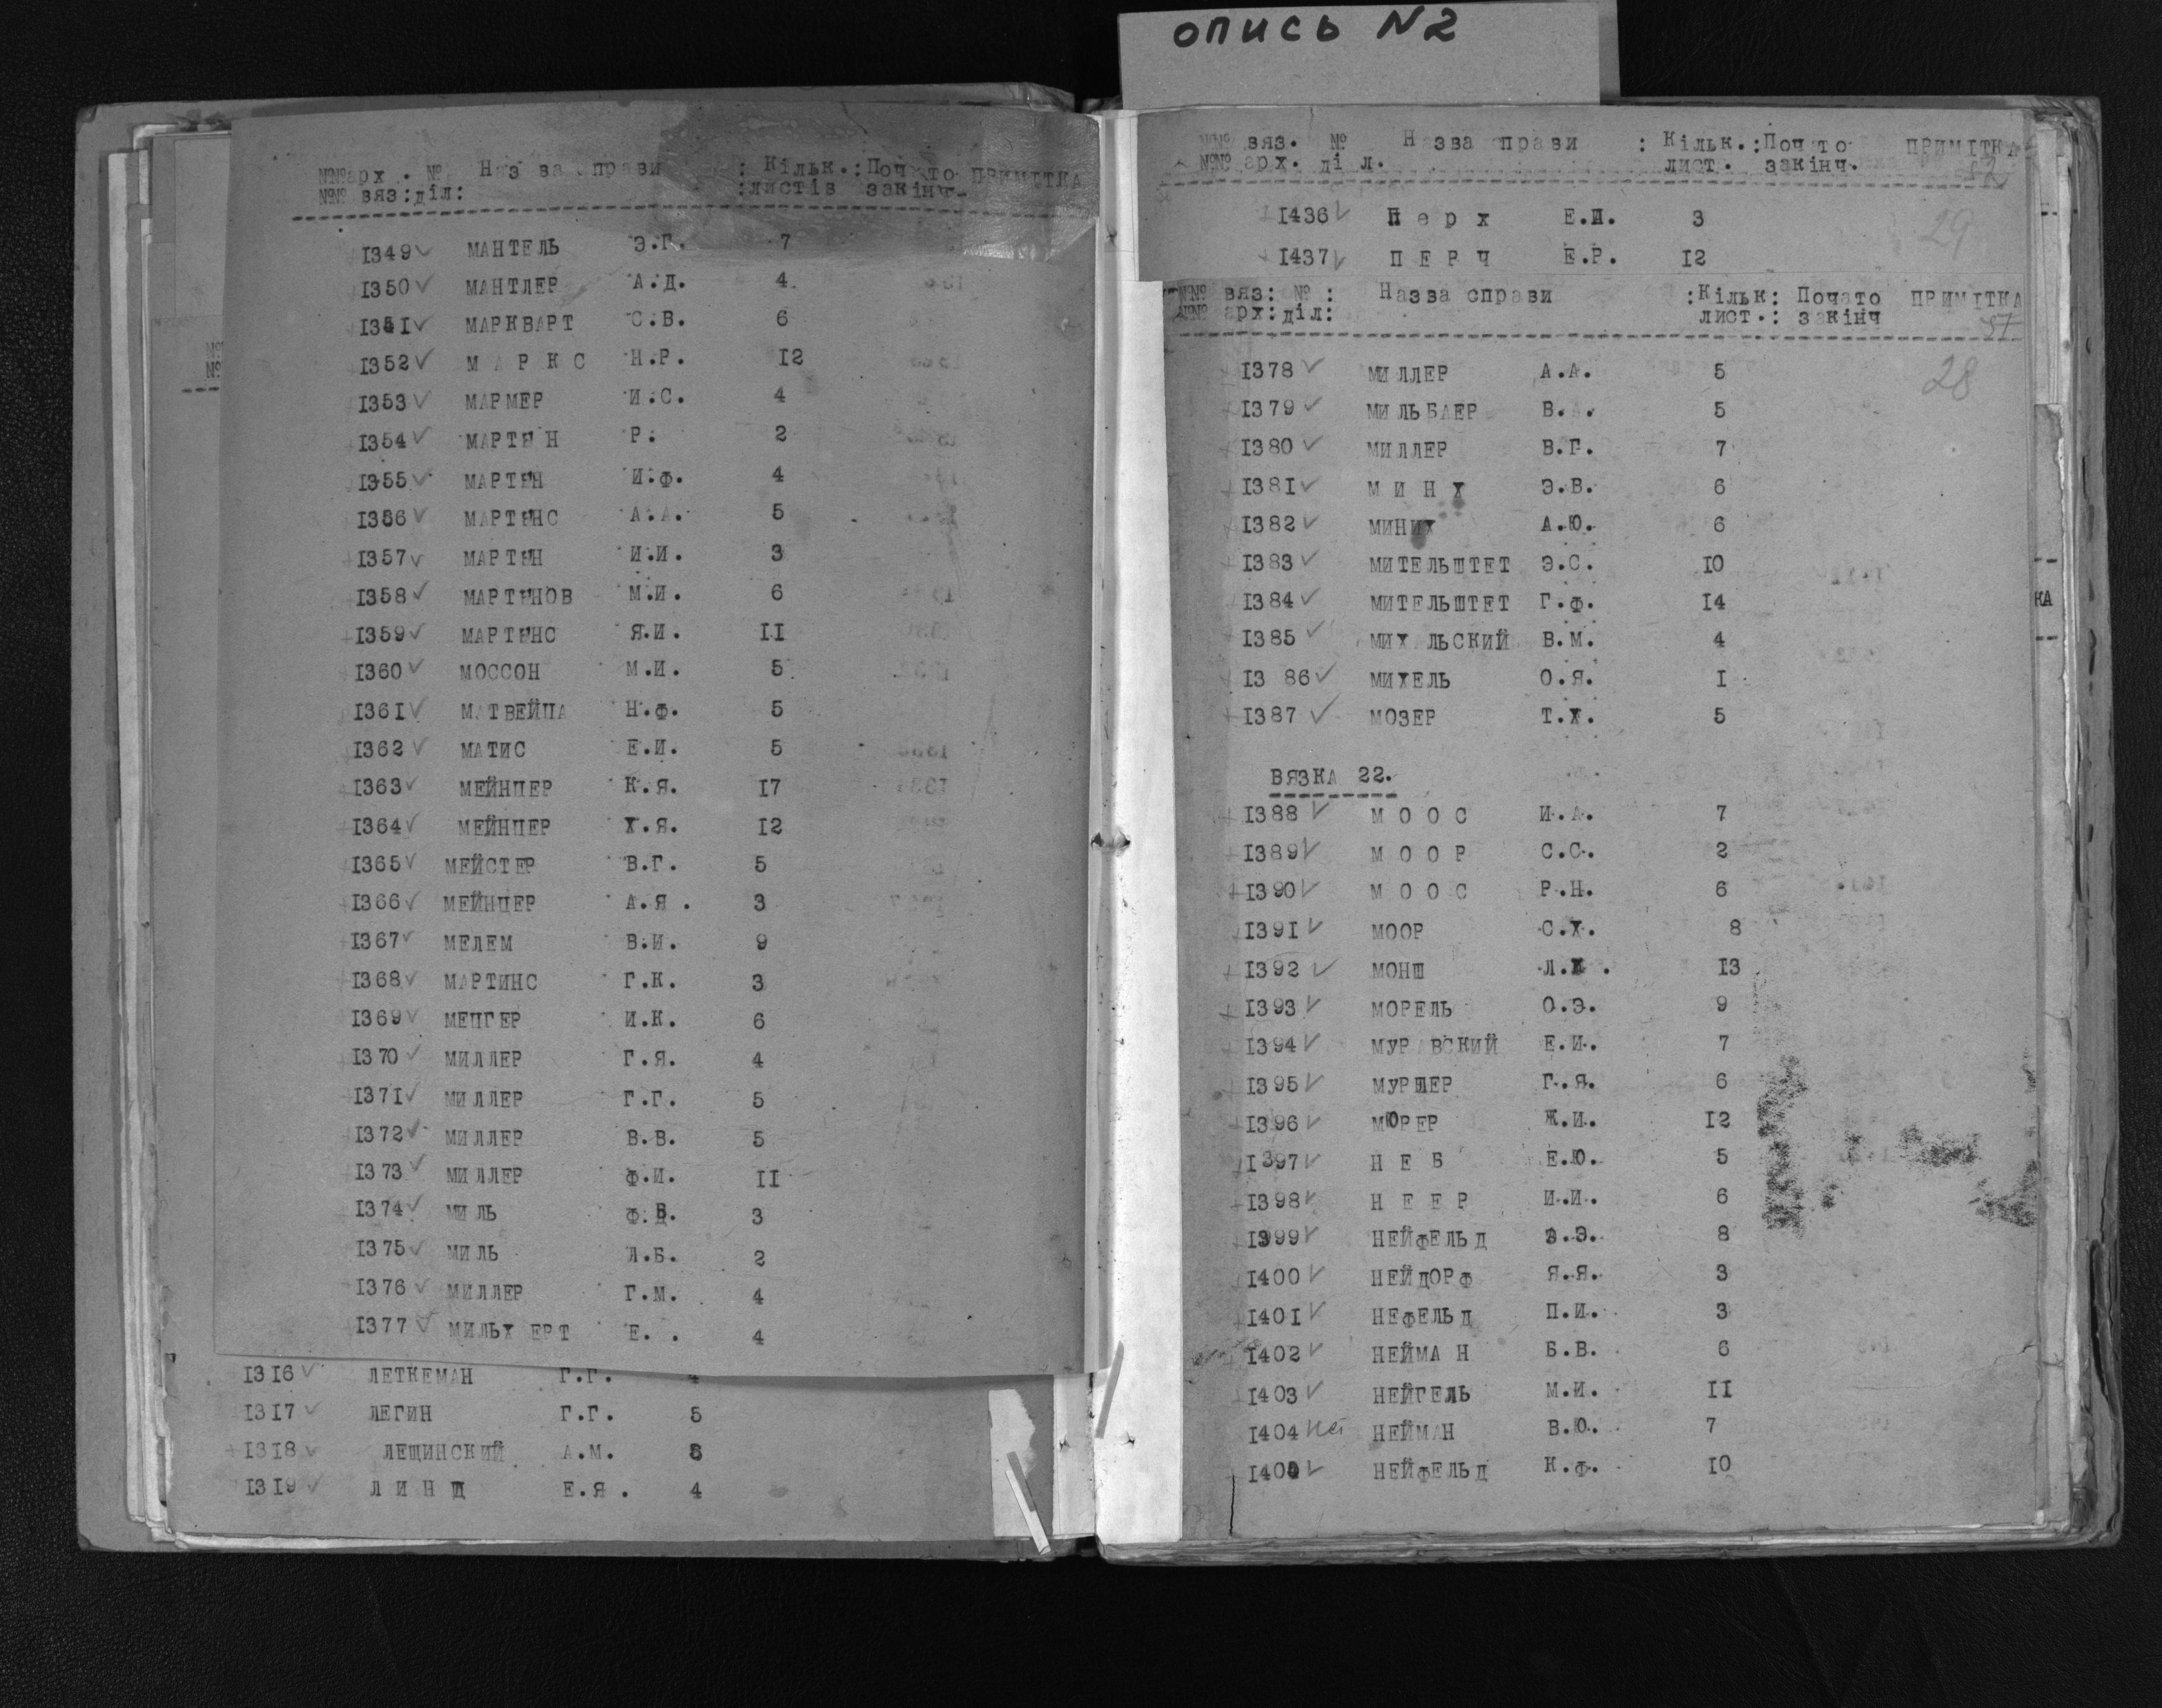 опись N2
№№ арх. № Назва справи : Кільк.: Почато ПРИМІТКА
№№ вяз: діл: :листів закінч.
1349 МАНТЕЛЬ Э.Г. 7
1350 МАНТЛЕР А.Д. 4
1351 МАРКВАРТ С.В. 6
1352 М А Р К С Н.Р. 12
1353 МАРМЕР И.С. 4
1354 МАРТЕН Р. 2
1355 МАРТЕН И.Ф. 4
1356 МАРТЕНС А.А. 5
1357 МАРТЕН И.И. 3
1358 МАРТЕНОВ М.И. 6
1359 МАРТЕНС Я.И. 11
1360 МОССОН М.И. 5
1361 МАТВЕЙЦА Н.Ф. 5
1362 МАТИС Е.И. 5
1363 МЕЙНЦЕР К.Я. 17
1364 МЕЙНЦЕР Х.Я. 12
1365 МЕЙСТЕР В.Г. 5
1366 МЕЙНЦЕР А.Я. 3
1367 МЕЛЕМ В.И. 9
1368 МАРТИНС Г.К. 3
1369 МЕЦГЕР И.К. 6
1370 МИЛЛЕР Г.Я. 4
1371 МИЛЛЕР Г.Г. 5
1372 МИЛЛЕР В.В. 5
1373 МИЛЛЕР Ф.И. 11
1374 МИЛЬ Ф.В. 3
1375 МИЛЬ Л.Б. 2
1376 МИЛЛЕР Г.М. 4
1377 МИЛЬХ ЕРТ Е. . 4
1316 ЛЕТКЕМАН Г.Г. 4
1317 ЛЕГИН Г.Г. 5
1318 ЛЕЩИНСКИЙ А.М. 8
1319 Л И Н Д Е.Я. 4
№№ вяз. № Назва справи : Кільк.: Почато ПРИМІТКА
№№ арх. діл. лист. закінч. 52
1436 Перх Е.И. 3 29
1437 П Е Р Ч Е.Р. 12
№№ вяз: № : Назва справи :Кільк: Почато ПРИМІТКА
№№ арх:діл: лист.: закінч 51
1378 МИЛЛЕР А.А. 5 28
1379 МИЛЬБАЕР В.А. 5
1380 МИЛЛЕР В.Г. 7
1381 М И Н Х Э.В. 6
1382 МИНИХ А.Ю. 6
1383 МИТЕЛЬШТЕТ Э.С. 10
1384 МИТЕЛЬШТЕТ Г.Ф. 14
1385 МИХАЛЬСКИЙ В.М. 4
13 86 МИХЕЛЬ О.Я. 1
1387 МОЗЕР Т.Х. 5
ВЯЗКА 22.
1388 М О О С И.А. 7
1389 М О О Р С.С. 2
1390 М О О С Р.Н. 6
1391 МООР С.Х. 8
1392 МОНШ Л. . 13
1393 МОРЕЛЬ О.Э. 9
1394 МУРАВСКИЙ Е.И. 7
1395 МУРШЕР Г.Я. 6
1396 МЮРЕР Ж.И. 12
1397 Н Е Б Е.Ю. 5
1398 Н Е Е Р И.И. 6
1399 НЕЙФЕЛЬД .Э. 8
1400 НЕЙДОРФ Я.Я. 3
1401 НЕФЕЛЬД П.И. 3
1402 НЕЙМАН Б.В. 6
1403 НЕЙГЕЛЬ М.И. 11
1404 НЕЙМАН В.Ю. 7
1405 НЕЙФЕЛЬД К.Ф. 10
КА